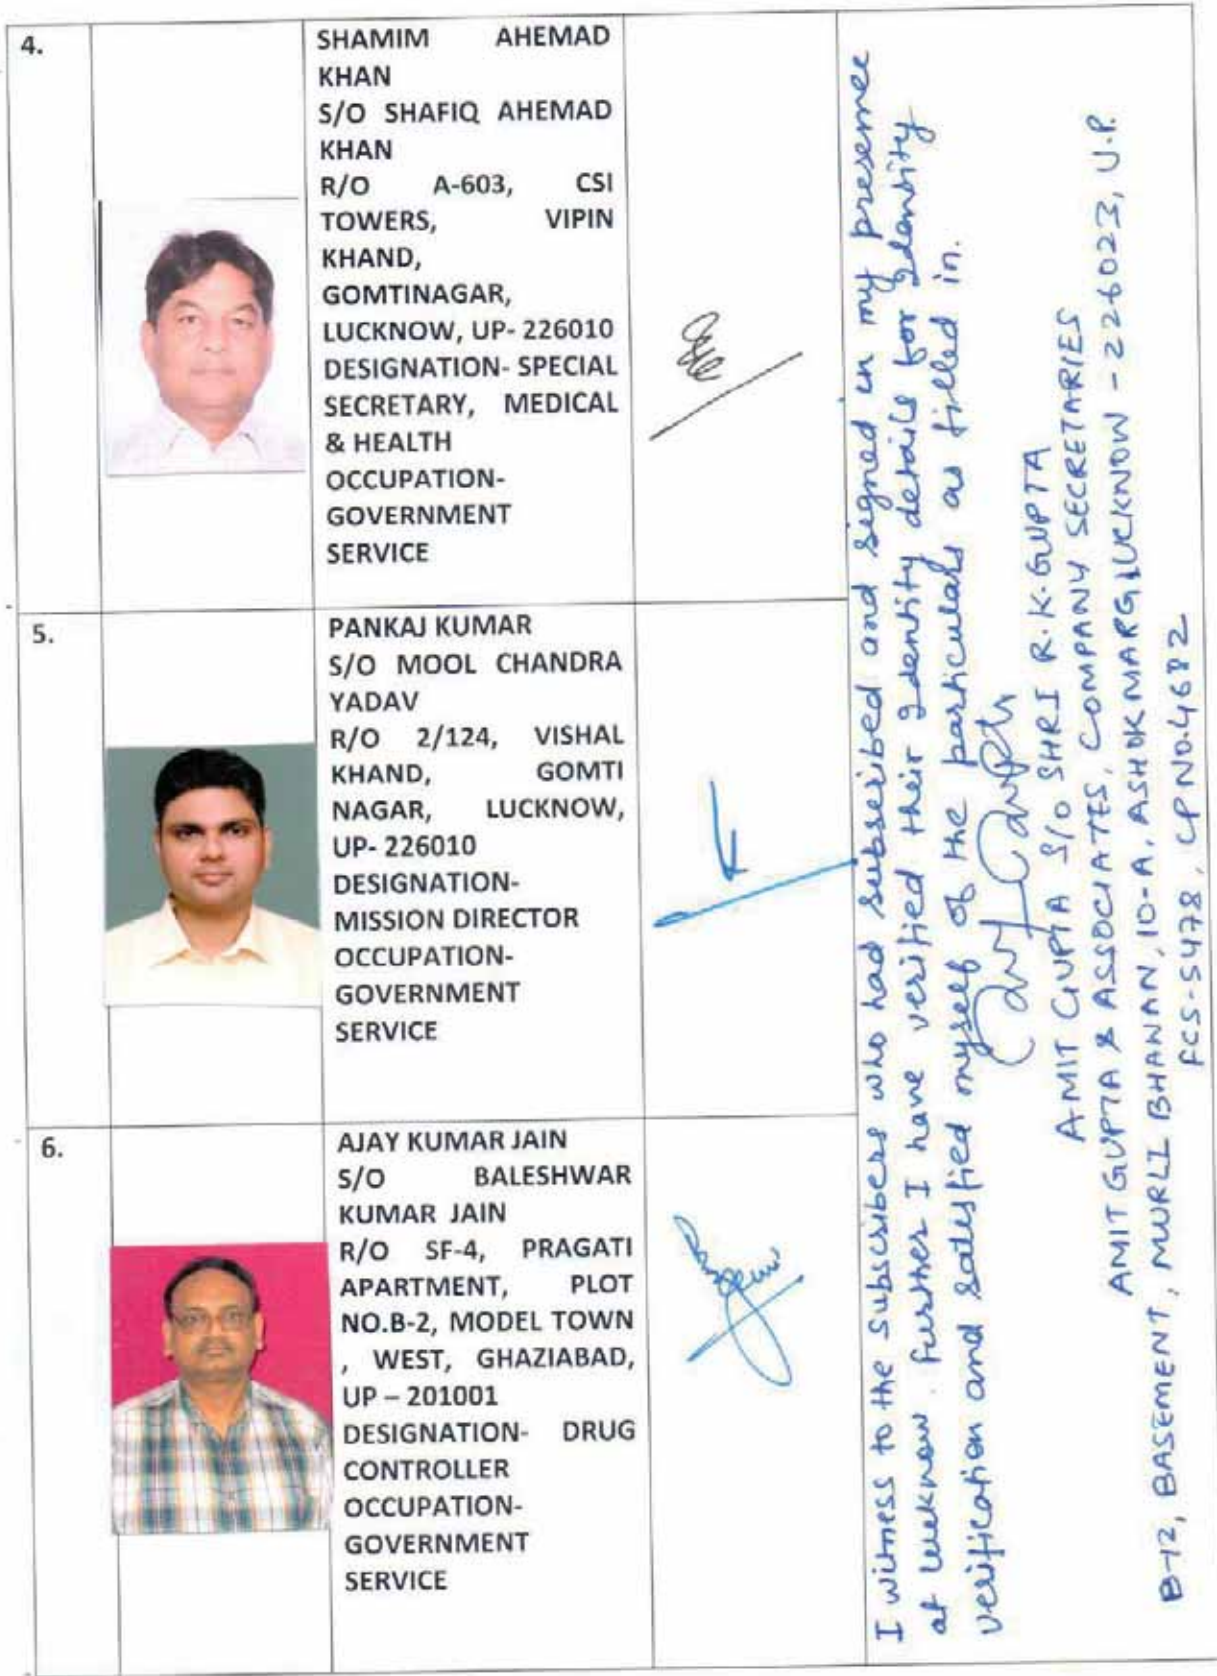 4.
SHAMIM AHEMAD
KHAN
S/O SHAFIQ AHEMAD
KHAN
R/O A-603, CSI
TOWERS, VIPIN
KHAND,
GOMTINAGAR,
LUCKNOW, UP- 226010
DESIGNATION- SPECIAL
SECRETARY, MEDICAL
& HEALTH
OCCUPATION-
GOVERNMENT
SERVICE
5.
PANKAJ KUMAR
S/O MOOL CHANDRA
YADAV
R/O 2/124, VISHAL
KHAND, GOMTI
NAGAR, LUCKNOW,
UP- 226010
DESIGNATION-
MISSION DIRECTOR
OCCUPATION-
GOVERNMENT
SERVICE
6.
AJAY KUMAR JAIN
S/O BALESHWAR
KUMAR JAIN
R/O SF-4, PRAGATI
APARTMENT, PLOT
NO.B-2, MODEL TOWN
, WEST, GHAZIABAD,
UP – 201001
DESIGNATION- DRUG
CONTROLLER
OCCUPATION-
GOVERNMENT
SERVICE
I witness to the subscribers who had subscribed and signed in my presence
at Lucknow. further I have verified their identity details for identity
verification and satisfied myself of the particulars as filled in.
AMIT GUPTA S/O SHRI R.K. GUPTA
AMIT GUPTA & ASSOCIATES, COMPANY SECRETARIES
B-12, BASEMENT, MURLI BHAWAN, 10-A, ASHOK MARG, LUCKNOW - 226023, U.P.
FCS-5478, CP NO.4682